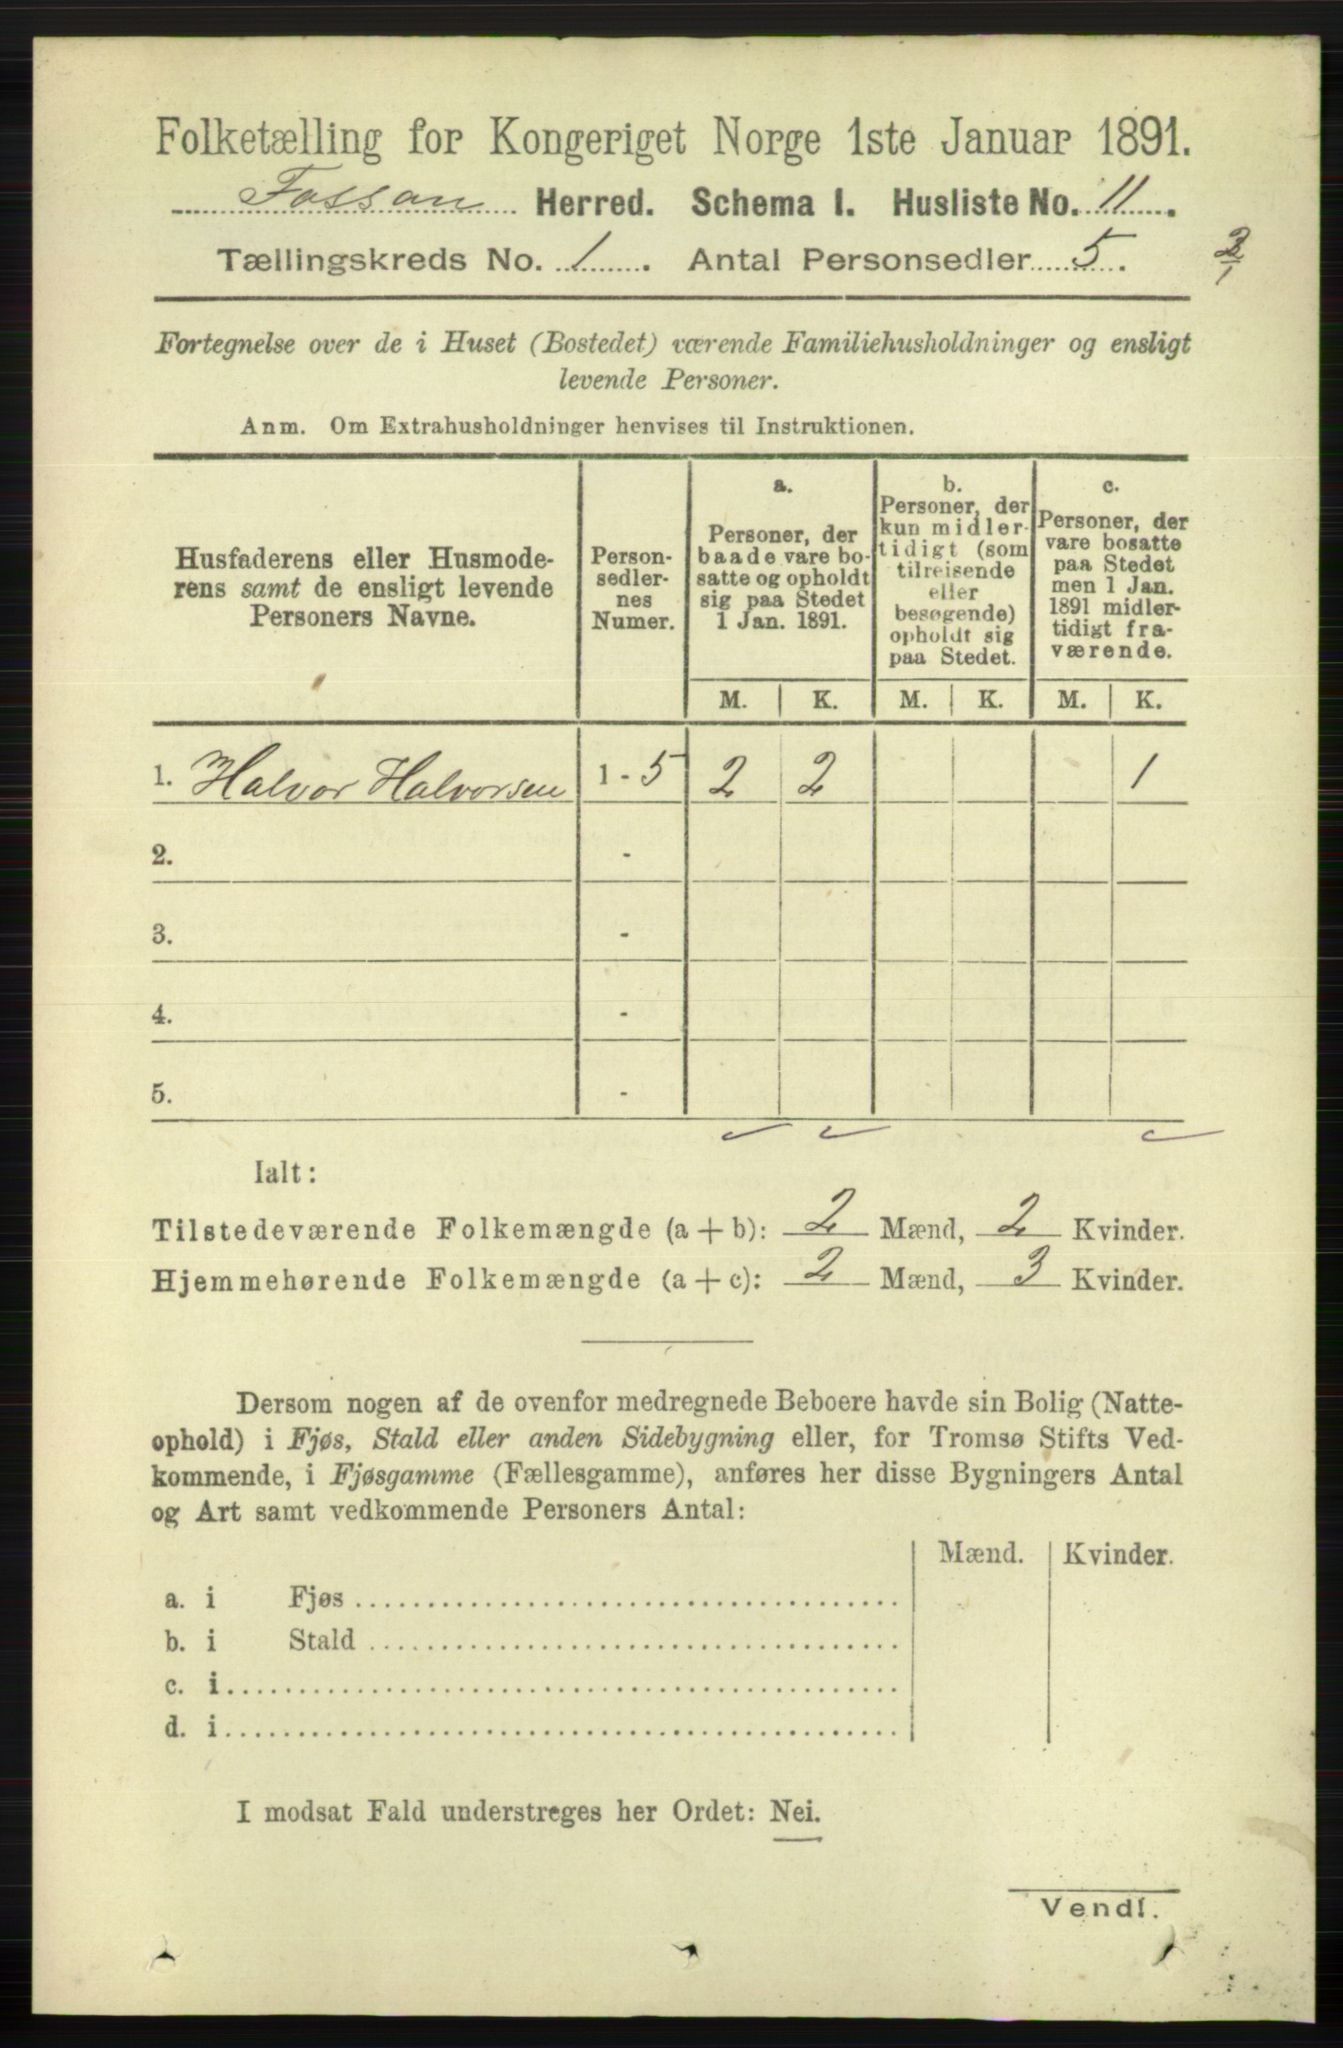 Folketælling for Kongeriget Norge 1ste Januar 1891.
Fossan Herred. Schema I. Husliste No. 11.
Tællingskreds No. 1. Antal Personsedler 5.
2/1
Fortegnelse over de i Huset (Bostedet) værende Familiehusholdninger og ensligt
levende Personer.
Anm. Om Extrahusholdninger henvises til Instruktionen.
Husfaderens eller Husmode-
rens samt de ensligt levende
Personers Navne.
Person-
sedler-
nes
Numer.
a.
Personer, der
baade vare bo-
satte og opholdt
sig paa Stedet
1 Jan. 1891.
b.
Personer, der
kun midler-
tidigt (som
tilreisende
eller
besøgende)
opholdt sig
paa Stedet.
c.
Personer, der
vare bosatte
paa Stedet
men 1 Jan.
1891 midler-
tidigt fra-
værende.
M. K. M. K. M. K.
1. Halvor Halvorsen 1 - 5 2 2 1
2. -
3. -
4. -
5. -
Ialt:
Tilstedeværende Folkemængde (a + b): 2 Mænd, 2 Kvinder.
Hjemmehørende Folkemængde (a + c): 2 Mænd, 3 Kvinder.
Dersom nogen af de ovenfor medregnede Beboere havde sin Bolig (Natte-
ophold) i Fjøs, Stald eller anden Sidebygning eller, for Tromsø Stifts Ved-
kommende, i Fjøsgamme (Fællesgamme), anføres her disse Bygningers Antal
og Art samt vedkommende Personers Antal:
Mænd. Kvinder.
a. i Fjøs
b. i Stald
c. i
d. i
I modsat Fald understreges her Ordet: Nei.
Vend!.